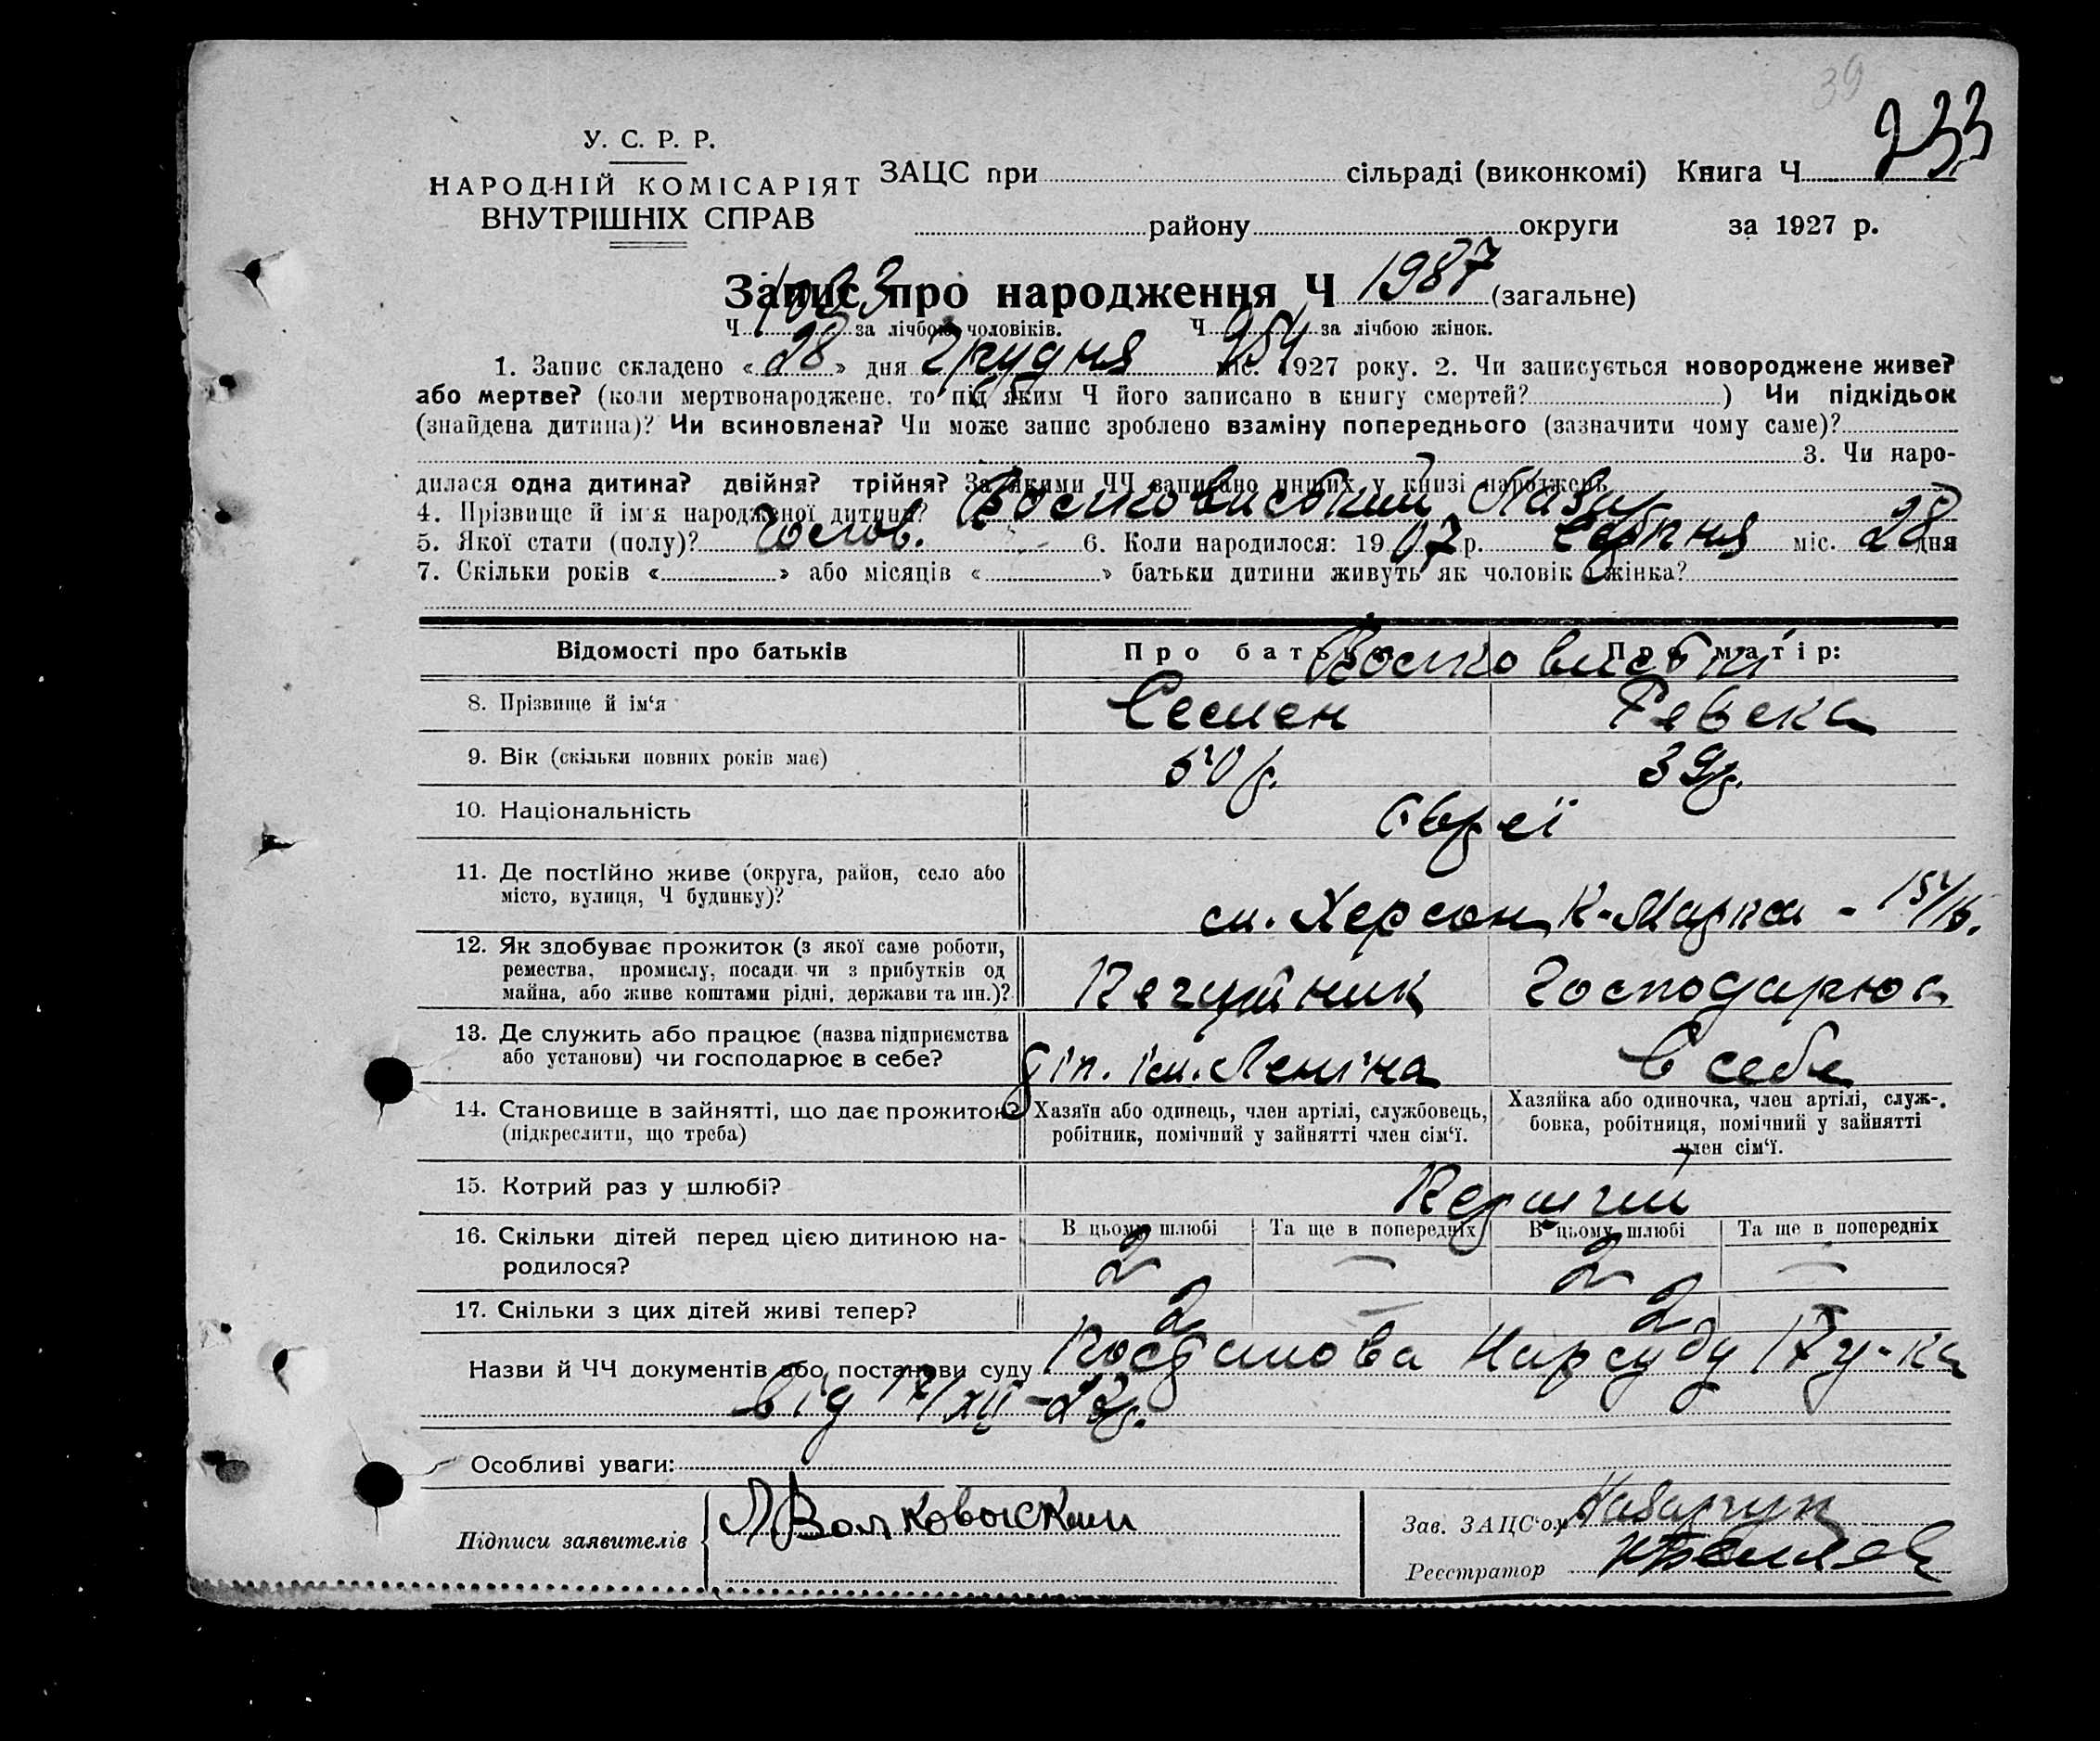 39
233
У. С. Р. Р.
НАРОДНІЙ КОМІСАРІЯТ
ВНУТРІШНІХ СПРАВ
ЗАЦС при сільраді (виконкомі) Книга Ч
району округи за 1927 р.
Запис про народження Ч 1987 (загальне)
Ч 1033 за лічбою чоловіків. Ч 954 за лічбою жінок.
1. Запис складено « 28 » дня Грудня міс. 1927 року. 2. Чи записується новороджене живе?
або мертве? (коли мертвонароджене, то під яким Ч його записано в книгу смертей? ) Чи підкідьок
(знайдена дитина)? Чи всиновлена? Чи може запис зроблено взаміну попереднього (зазначити чому саме)?
3. Чи наро-
дилася одна дитина? двійня? трійня? За якими ЧЧ записано инших у книзі народжень
4. Прізвище й ім'я народженої дитини?
5. Якої стати (полу)? Чолов. 6. Коли народилося: 1907 р. Серпня міс. 28 дня
7. Скільки років « » або місяців « » батьки дитини живуть як чоловік і жінка?
Відомості про батьків Про батька: Про матір:
8. Прізвище й ім'я Семен Ревека
9. Вік (скільки повних років має) 50 р. 39 р.
10. Національність Євреї
11. Де постійно живе (округа, район, село або
місто, вулиця, Ч будинку)?
см. Херсон, К-Маркса - 15/16.
12. Як здобуває прожиток (з якої саме роботи,
ремества, промислу, посади чи з прибутків од
майна, або живе коштами рідні, держави та ин.)?
Господарює
13. Де служить або працює (назва підприємства
або установи) чи господарює в себе?
ім. Леніна В себе
14. Становище в зайнятті, що дає прожиток?
(підкреслити, що треба)
Хазяїн або одинець, член артілі, службовець,
робітник, помічний у зайнятті член сім'ї.
Хазяйка або одиночка, член артілі, служ-
бовка, робітниця, помічний у зайнятті
член сім'ї.
15. Котрий раз у шлюбі? Перший
16. Скільки дітей перед цією дитиною на-
родилося?
В цьому шлюбі Та ще в попередніх В цьому шлюбі Та ще в попередніх
2 — 2 —
17. Скільки з цих дітей живі тепер? 2 — 2
Назви й ЧЧ документів або постанови суду Постанова Нарсуду 17 у-ка
від
Особливі уваги:
Підписи заявителів Л Волковыский
Зав. ЗАЦС'ом
Реєстратор